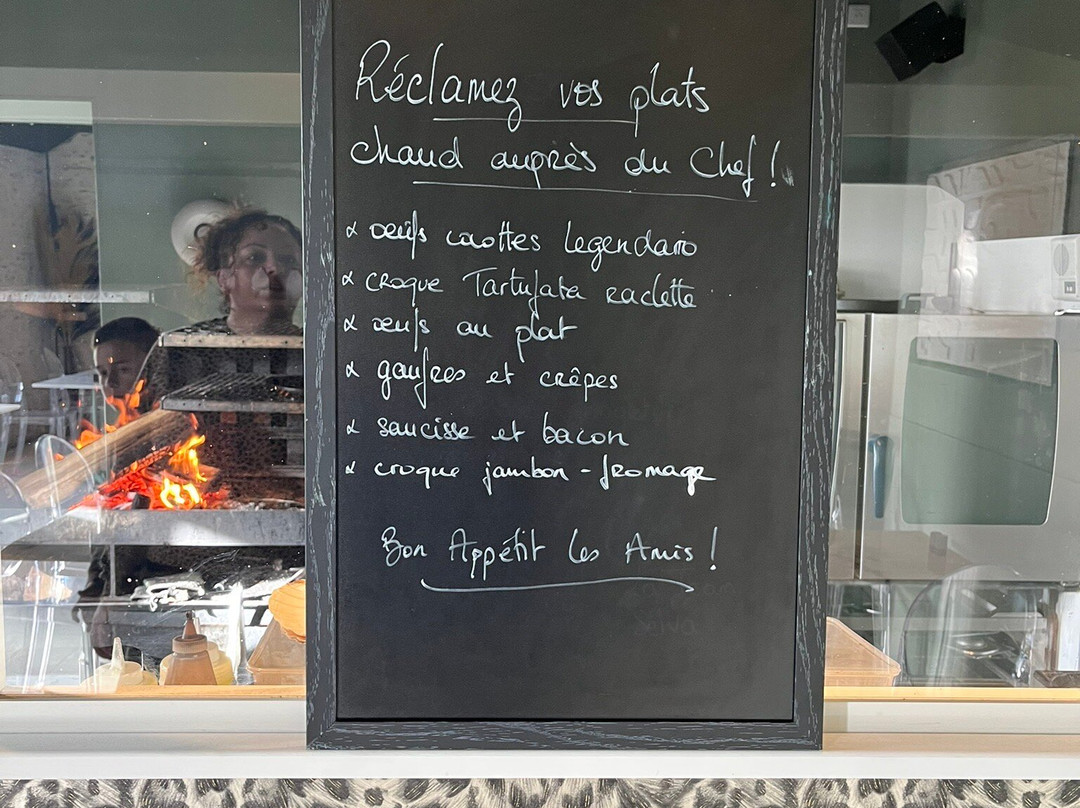 Réclamez vos plats
chaud auprès du Chef !
oeufs cocottes Legendario
croque Tartufata raclette
oeufs au plat
gaufres et crêpes
saucisse et bacon
croque jambon - fromage
Bon Appétit les Amis !